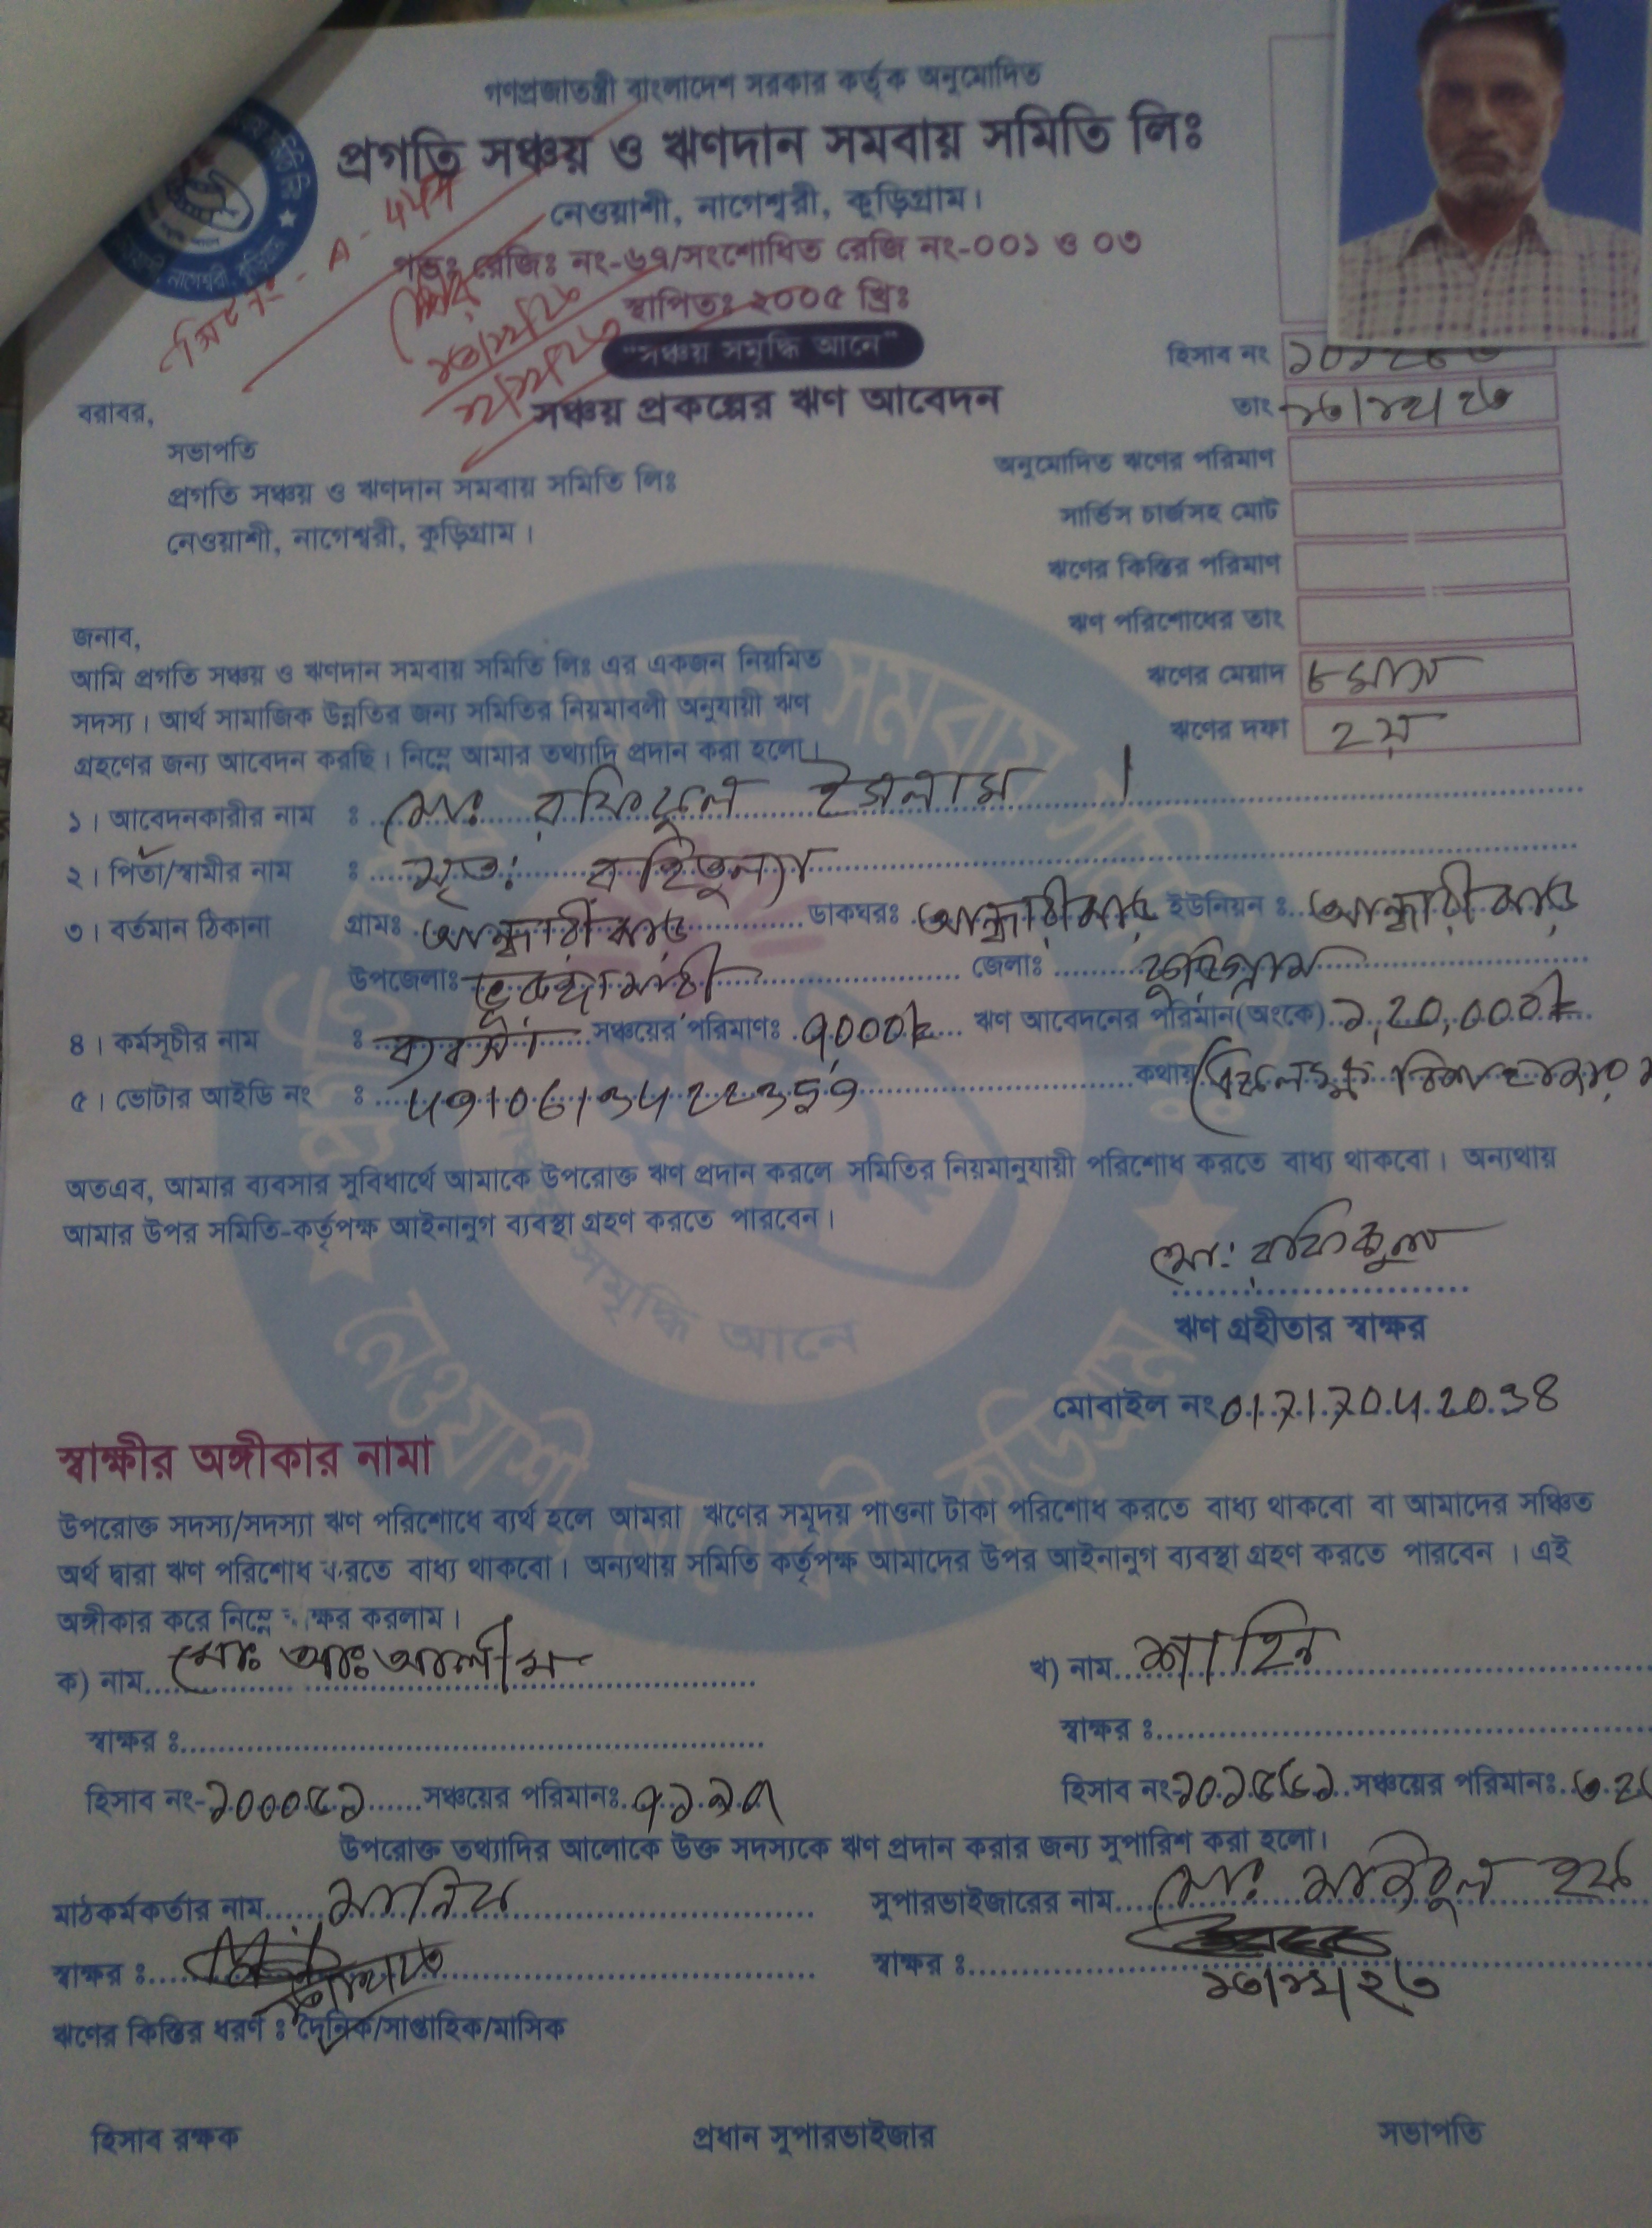 গণপ্রজাতন্ত্রী বাংলাদেশ সরকার কর্তৃক অনুমোদিত
প্রগতি সঞ্চয় ও ঋণদান সমবায় সমিতি লিঃ
নেওয়াশী, নাগেশ্বরী, কুড়িগ্রাম।
গভঃ রেজিঃ নং-৬৭/সংশোধিত রেজি নং-০০১ ও ০৩
স্থাপিতঃ ২০০৫ খ্রিঃ
"সঞ্চয় সমৃদ্ধি আনে"
হিসাব নং
সঞ্চয় প্রকল্পের ঋণ আবেদন
তাং ১৩/১২/২৩
বরাবর,
সভাপতি
প্রগতি সঞ্চয় ও ঋণদান সমবায় সমিতি লিঃ
নেওয়াশী, নাগেশ্বরী, কুড়িগ্রাম।
অনুমোদিত ঋণের পরিমাণ
সার্ভিস চার্জসহ মোট
ঋণের কিস্তির পরিমাণ
ঋণ পরিশোধের তাং
ঋণের মেয়াদ ৮ মাস
ঋণের দফা ২য়
জনাব,
আমি প্রগতি সঞ্চয় ও ঋণদান সমবায় সমিতি লিঃ এর একজন নিয়মিত
সদস্য। আর্থ সামাজিক উন্নতির জন্য সমিতির নিয়মাবলী অনুযায়ী ঋণ
গ্রহণের জন্য আবেদন করছি। নিম্নে আমার তথ্যাদি প্রদান করা হলো।
১। আবেদনকারীর নাম ঃ মোঃ রফিকুল ইসলাম।
২। পিতা/স্বামীর নাম ঃ মৃতঃ
৩। বর্তমান ঠিকানা গ্রামঃ আন্ধারীঝাড় ডাকঘরঃ আন্ধারীঝাড় ইউনিয়ন ঃ আন্ধারীঝাড়
উপজেলাঃ ভুরুঙ্গামারী জেলাঃ কুড়িগ্রাম
৪। কর্মসূচীর নাম ঃ ব্যবসা সঞ্চয়ের পরিমাণঃ ৭০০০ ঋণ আবেদনের পরিমান(অংকে) ১,২০,০০০
৫। ভোটার আইডি নং ঃ কথায়
অতএব, আমার ব্যবসার সুবিধার্থে আমাকে উপরোক্ত ঋণ প্রদান করলে সমিতির নিয়মানুযায়ী পরিশোধ করতে বাধ্য থাকবো। অন্যথায়
আমার উপর সমিতি-কর্তৃপক্ষ আইনানুগ ব্যবস্থা গ্রহণ করতে পারবেন।
মোঃ রফিকুল
ঋণ গ্রহীতার স্বাক্ষর
মোবাইল নং
স্বাক্ষীর অঙ্গীকার নামা
উপরোক্ত সদস্য/সদস্যা ঋণ পরিশোধে ব্যর্থ হলে আমরা ঋণের সমূদয় পাওনা টাকা পরিশোধ করতে বাধ্য থাকবো বা আমাদের সঞ্চিত
অর্থ দ্বারা ঋণ পরিশোধ করতে বাধ্য থাকবো। অন্যথায় সমিতি কর্তৃপক্ষ আমাদের উপর আইনানুগ ব্যবস্থা গ্রহণ করতে পারবেন। এই
অঙ্গীকার করে নিম্নে স্বাক্ষর করলাম।
ক) নাম মোঃ আঃ আলীম খ) নাম শাহিন
স্বাক্ষর ঃ স্বাক্ষর ঃ
হিসাব নং- ১০০০৫১ সঞ্চয়ের পরিমানঃ ৭১৯৭ হিসাব নং- সঞ্চয়ের পরিমানঃ
উপরোক্ত তথ্যাদির আলোকে উক্ত সদস্যকে ঋণ প্রদান করার জন্য সুপারিশ করা হলো।
মাঠকর্মকর্তার নাম সুপারভাইজারের নাম মোঃ হক
স্বাক্ষর ঃ স্বাক্ষর ঃ
১৩/১২/২৩
ঋণের কিস্তির ধরণ ঃ দৈনিক/সাপ্তাহিক/মাসিক
হিসাব রক্ষক প্রধান সুপারভাইজার সভাপতি